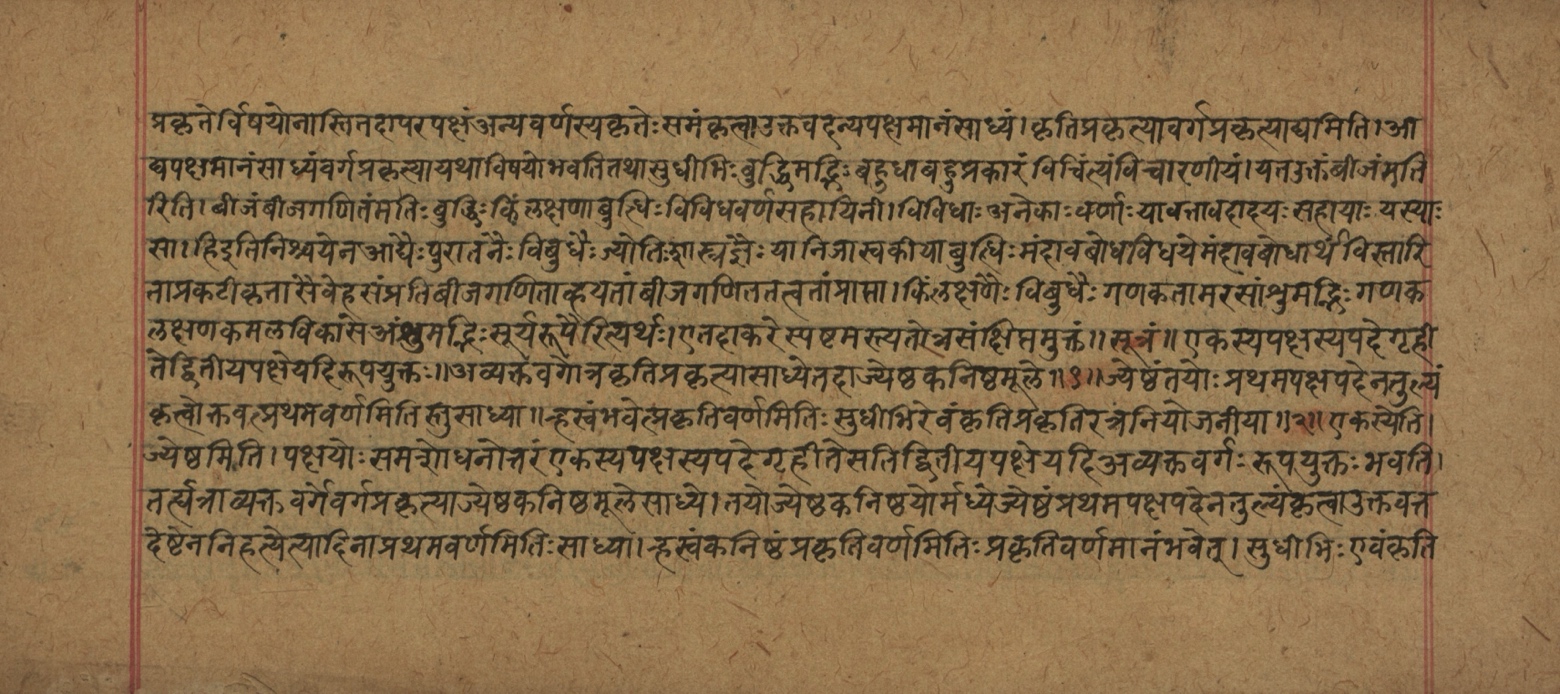 प्रकृतेर्विषयोनास्तितदापरपक्षंअन्यवर्णस्यकृतेःसमंकृत्वाउक्तवदन्यपक्षमानंसाध्यं।कृतिप्रकृत्यावर्गप्रकृत्याद्यमिति।आ
द्यपक्षमानंसाध्यंवर्गप्रकृत्त्यायथाविषयोभवतितथासुधीभिःबुद्धिमद्भिःबहुधाबहुप्रकारंविचिंत्यंविचारणीयं।यतउक्तंबीजंमति
रिति।बीजंबीजगणितंमतिःबुद्धिःकिंलक्षणाबुद्धिःविविधवर्णसहायिनी।विविधाःअनेकाःवर्णाःयावत्तावदादयःसहायाःयस्याः
सा।हिइतिनिश्चयेनआद्यैःपुरातनैःविबुधैःज्योतिःशास्त्रज्ञैःयानिजास्वकीयाबुद्धिःमंदावबोधविधयेमंदावबोधार्थंविस्तारि
ताप्रकटीकृतासैवेहसंप्रतिबीजगणिताव्हयतांबीजगणिततत्वतांप्राप्ता।किंलक्षणैःविबुधैःगणकतामरसांशुमद्भिःगणक
लक्षणकमलविकासअंशुमद्भिःसूर्यरूपैरित्यर्थः।एतदाकरेस्पष्टमस्त्यतोत्रसंक्षिप्तमुक्तं।।सूत्रं॥एकस्यपक्षस्यपदेगृही
तेद्वितीयपक्षेयदिरूपयुक्तः॥अव्यक्तवर्गोत्रकृतिप्रकृत्यासाध्येतदाज्येष्ठकनिष्ठमूले॥१॥ज्येष्ठंतयोःप्रथमपक्षपदेनतुल्यं
कृत्वोक्तवत्प्रथमवर्णमितिस्तुसाध्या॥ऱ्हस्वंभवेत्प्रकृतिवर्णमितिःसुधीभिरेवंकृतिप्रकृतिरत्रनियोजनीया॥२॥एकस्येति।
ज्येष्ठमिति।पक्षयोःसमशोधनोत्तरंएकस्यपक्षस्यपदेगृहीतेसतिद्वितीयपक्षेयदिअव्यक्तवर्गःरूपयुक्तःभवति।
तर्ह्यत्राव्यक्तवर्गेवर्गप्रकृत्याज्येष्ठकनिष्ठमूलेसाध्ये।तयोर्ज्येष्ठकनिष्ठयोर्मध्येज्येष्ठंप्रथमपक्षपदेनतुल्यंकृत्वाउक्तवत्त
देष्टेननिहत्येत्यादिनाप्रथमवर्णमितिःसाध्या।ऱ्हस्वंकनिष्ठंप्रकृतिवर्णमितिःप्रकृतिवर्णमानंभवेत्।सुधीभिःएवंकृति